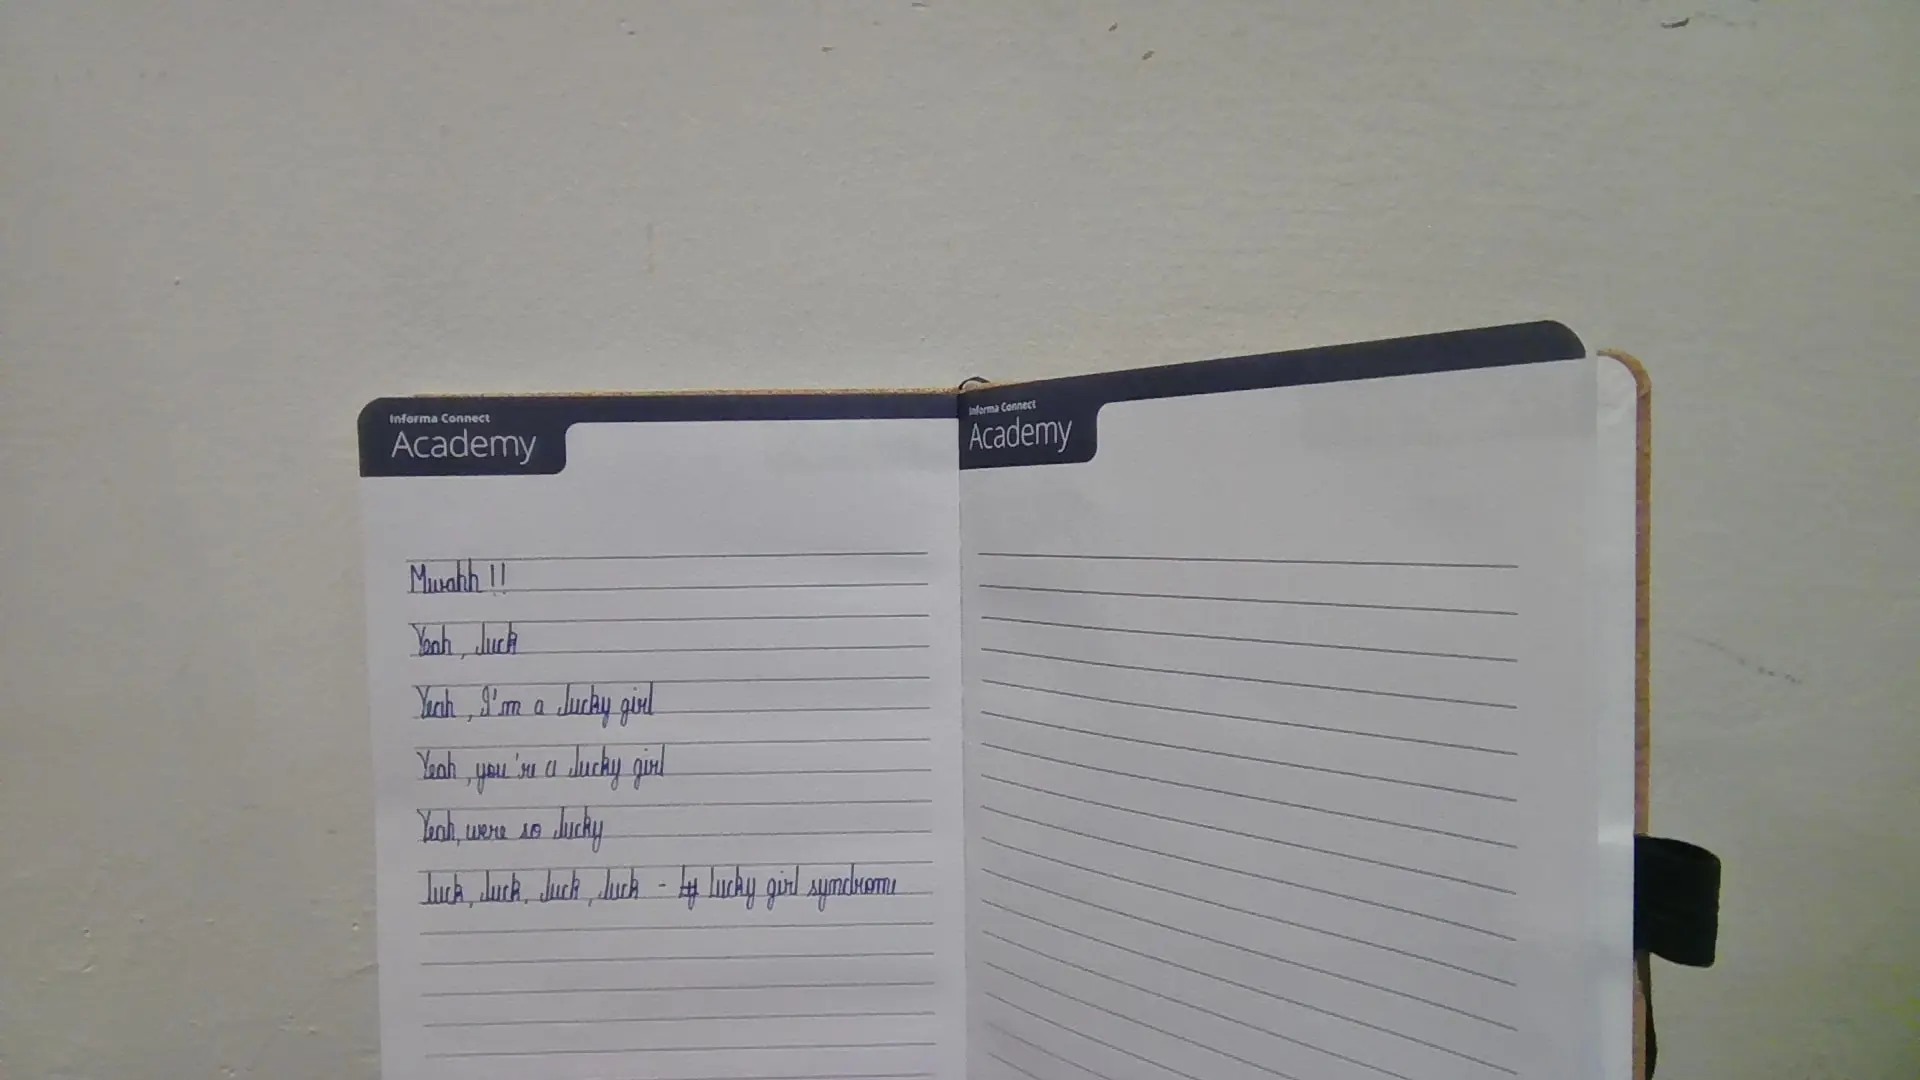 Informa Connect
Academy
Mwahh !!
Yeah, luck
Yeah, I'm a lucky girl
Yeah, you're a lucky girl
Yeah, were so lucky
luck, luck, luck, luck - lucky girl syndrome
Informa Connect
Academy